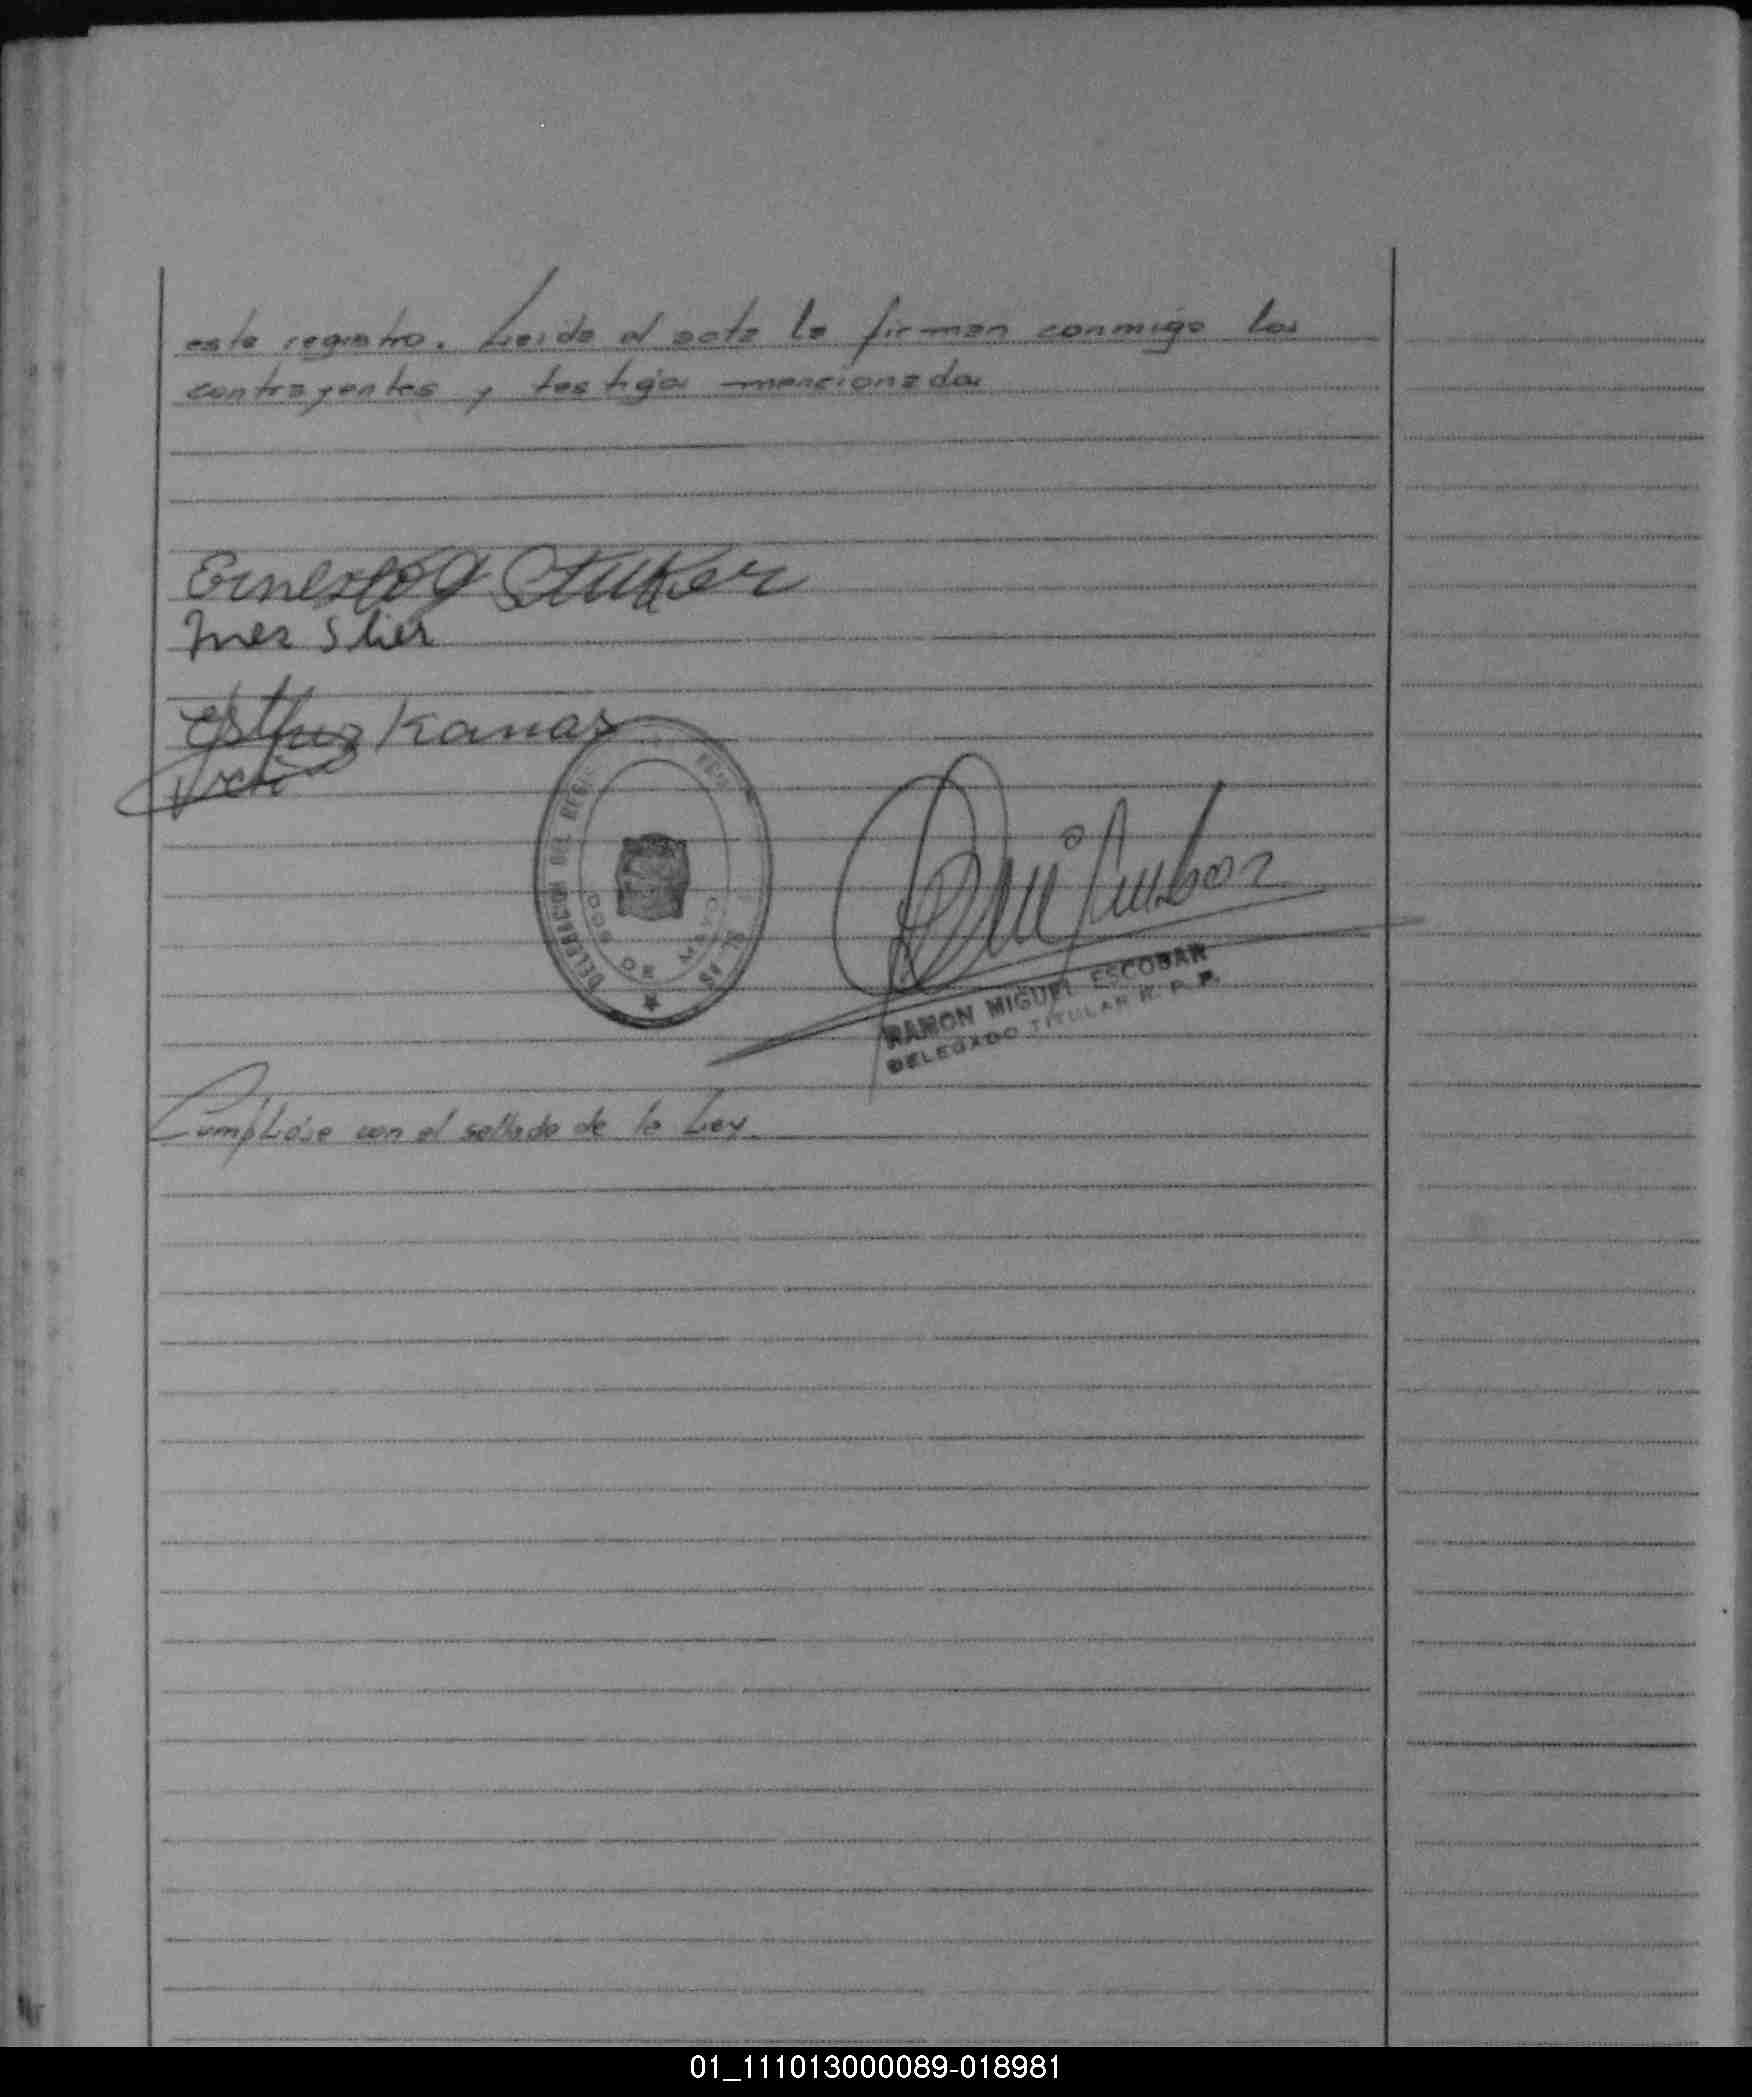 este registro. Leida el acta la firman conmigo los
contrayentes y testigos mencionados
Ernesto A Stuker
Ines Stier
Esther Kanas
DELEGACION DEL REG
RAMON MIGUEL ESCOBAR
DELEGADO TITULAR R. P. P.
Cumplióse con el sellado de la Ley.
01_111013000089-018981